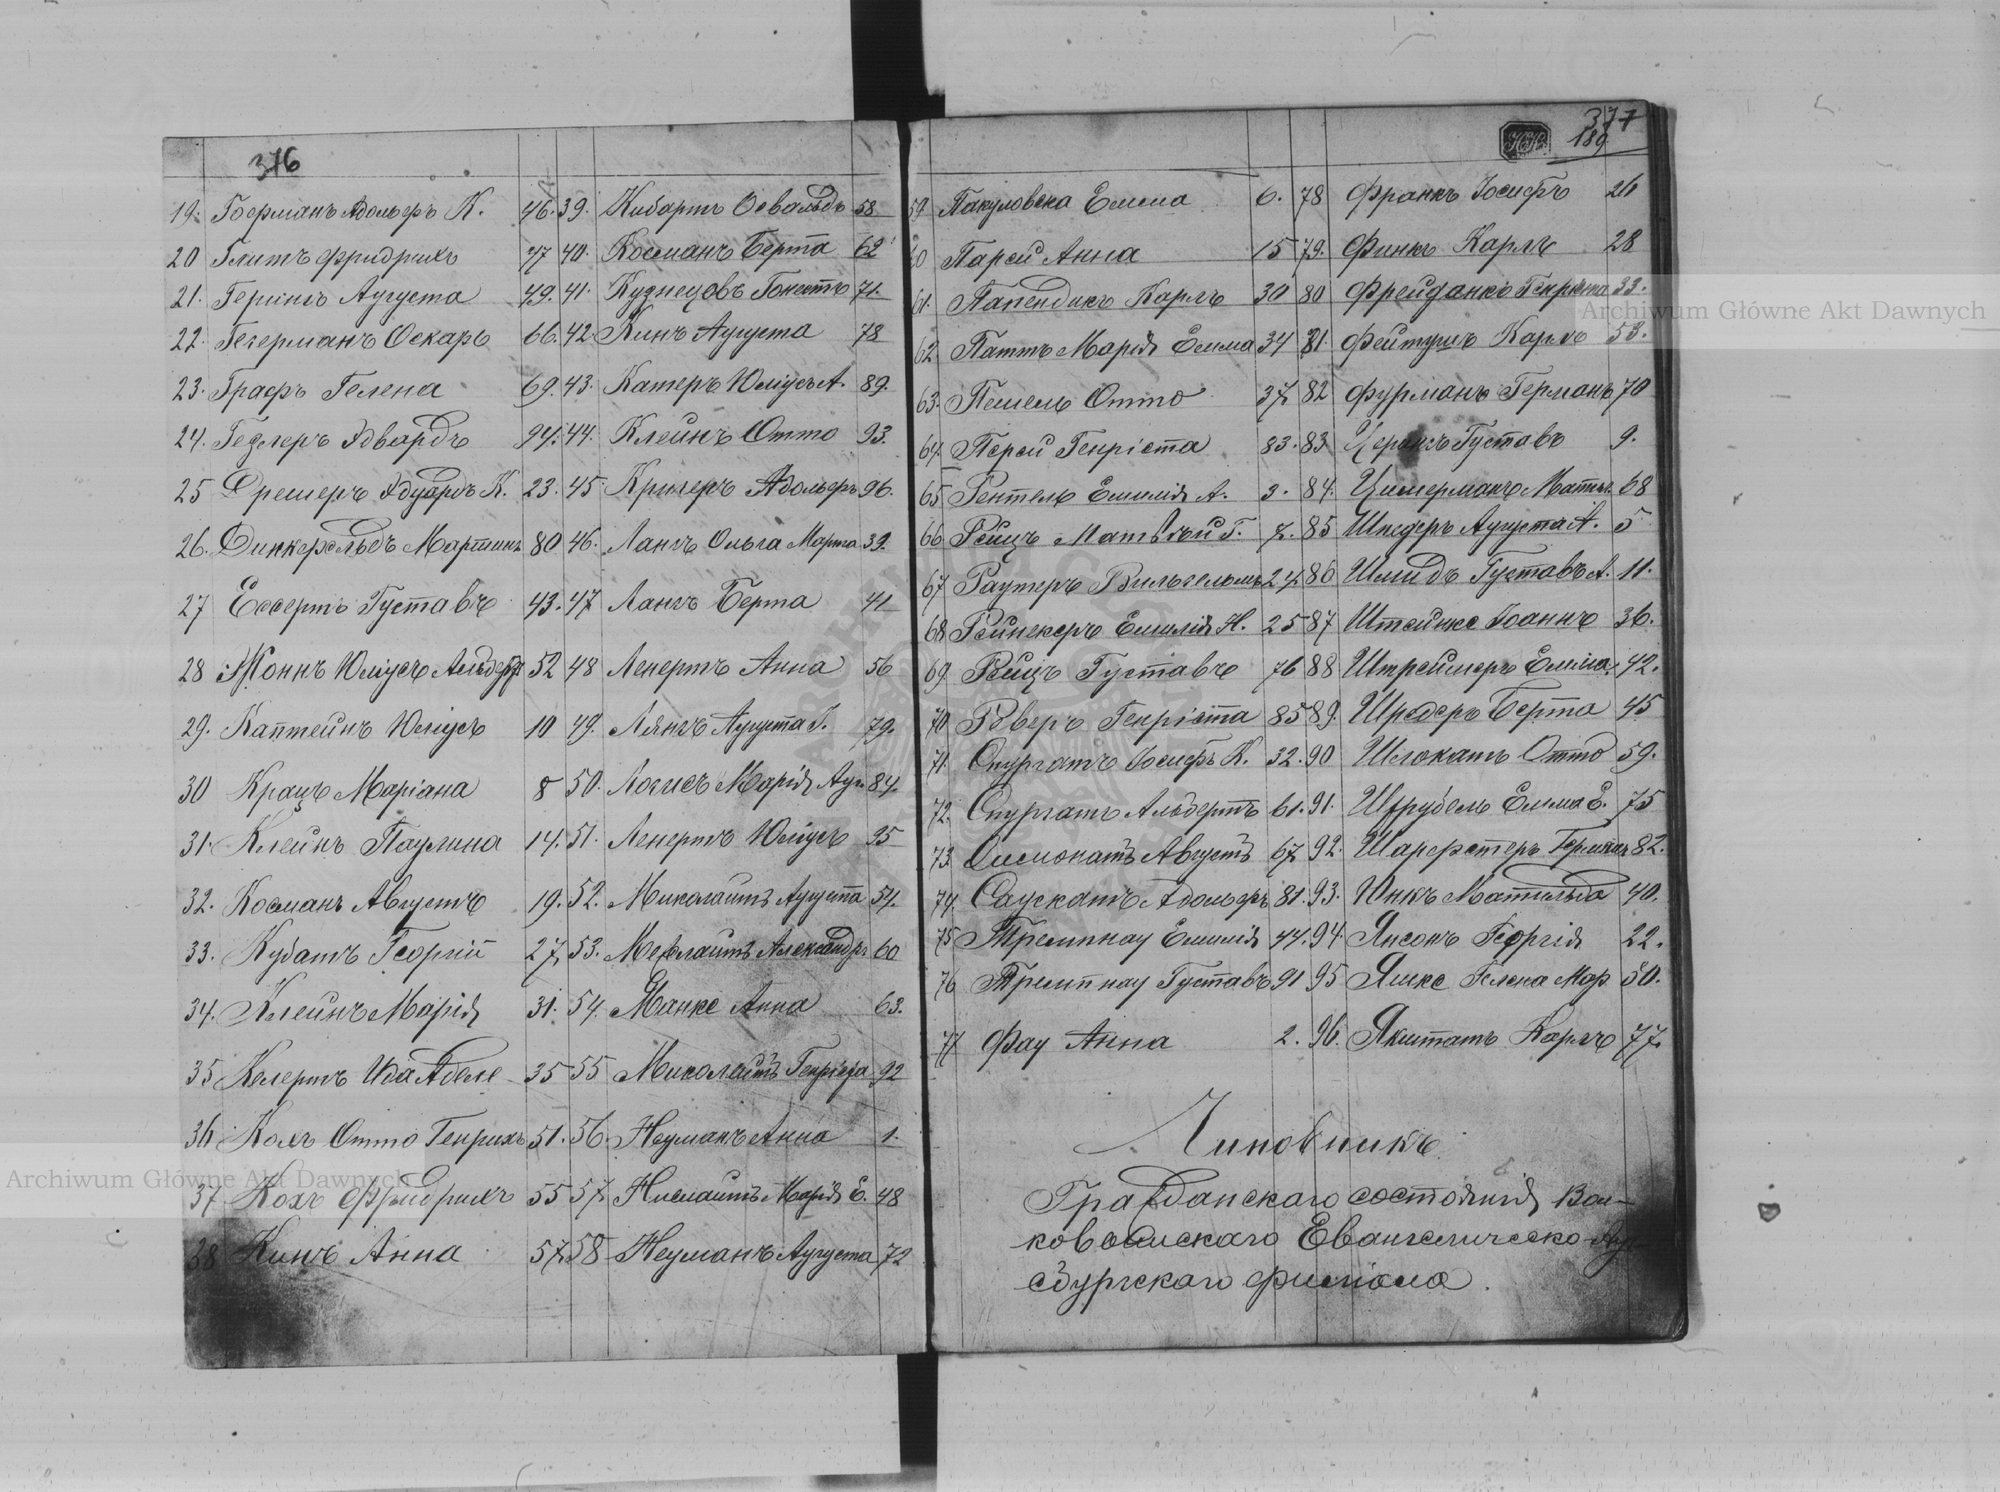 376
19. Гоерманъ Адольфъ К. 46.
20 Глитъ Фридрихъ 47
21. Герингъ Аугуста 49.
22. Гегерманъ Оскаръ 66.
23. Графъ Гелена 69.
24. Гезлеръ Эдвардъ 94.
25 Дрешеръ Эдуардъ К. 23.
26. Динкерсльдъ Мартинъ 80
27 Ессертъ Густавъ 43.
28 Жоннъ Юлiусъ Альбертъ 52
29. Каптейнъ Юлiусъ 10
30 Крацъ Марiана 8
31. Клейнъ Паулина 14.
32. Косманъ Августъ 19.
33. Кубатъ Георгiй 27.
34. Клейнъ Марiя 31.
35 Келертъ Ида Аделе 35
36 Кохъ Отто Генрихъ 51.
37 Кохъ Фридрихъ 55
38 Кинъ Анна 57.
39. Кибартъ Освальдъ 58
40. Косманъ Берта 62
41. Кузнецовъ 71.
42. Кинъ Аугуста 78
43. Катеръ Юлiусъ А. 89.
44. Клейнъ Отто 93.
45 Кригеръ Адольфъ 96.
46. Лангъ Ольга Марта 39.
47 Лангъ Берта 41
48 Ленертъ Анна 56
49. Лянгъ Аугуста Г. 79.
50. Логисъ Марiя Ауг. 84.
51. Ленертъ Юлiусъ 95
52. Миколаитъ Аугуста 54.
53. Мевлаитъ Александръ 60
54. Манке Анна 63.
55 Миколаитъ 92
56. Неуманъ Анна 1.
57. Нислаитъ Марiя Е. 48
58 Неуманъ Аугуста 72
377
189
59 Пакуловска Емма 6.
60 Парей Анна 15
61. Папендикъ Карлъ 30
62. Паттъ Марiя Емма 34
63. Пешель Отто 37.
64. Перей Генрiета 83.
65 Рентель Емилiя А. 3.
66 Рейцъ Матвѣй Г. 7.
67 Раутеръ Вильгельмъ 24.
68 Рейнекеръ Емилiя Н. 25
69 Рейцъ Густавъ 76
70 Роверъ Генрiета 85
71. Спургатъ Iосифъ К. 32.
72. Спургатъ Альбертъ 61.
73. Симонатъ Августъ 67.
74. Саускатъ Адольфъ 81.
75 Тремпнау Емилiя 44.
76 Тремпнау Густавъ 91
77 Фау Анна 2.
78 Франкъ Iосифъ 26
79. Финкъ Карлъ 28
80 Фрейданкъ Генрiета 33.
81. Фейтушъ Карлъ 53.
82 Фурманъ Германъ 70
83 Густавъ 9.
84. Цимерманъ 68
85 Шредеръ Аугуста А. 5
86 Шмидъ Густавъ А. 11.
87 Штейнке Iоаннъ 36.
88 Штреймеръ Емма. 42.
89. Шредеръ Берта 45
90 Шлокатъ Отто 59.
91. Штрубель Емма Е. 75
92. Шарфстеръ 82.
93. Юнкъ Матильда 40.
94. Янсонъ Георгiя 22.
95 Яшке Гелена Мар. 50.
96. Якштатъ Карлъ 77.
Чиновникъ
Гражданскаго состоянiя Вол-
ковышскаго Евангелическо-Ауг-
сбургскаго филiала.
Archiwum Główne Akt Dawnych
Archiwum Główne Akt Dawnych